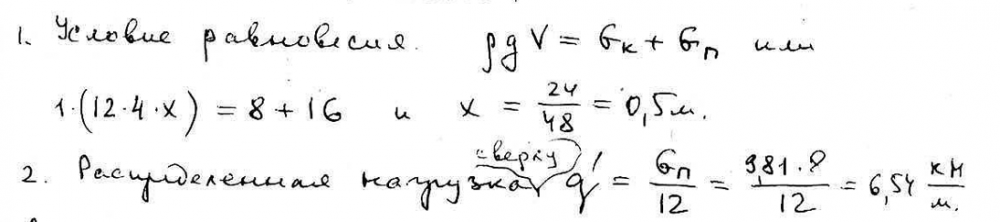 1. Условие равновесия. ρgV = Gк + Gп или
1·(12·4·x) = 8 + 16 и x = 24/48 = 0,5 м.
2. Распределенная нагрузка сверху q' = Gп/12 = 9,81·8/12 = 6,54 кН/м.